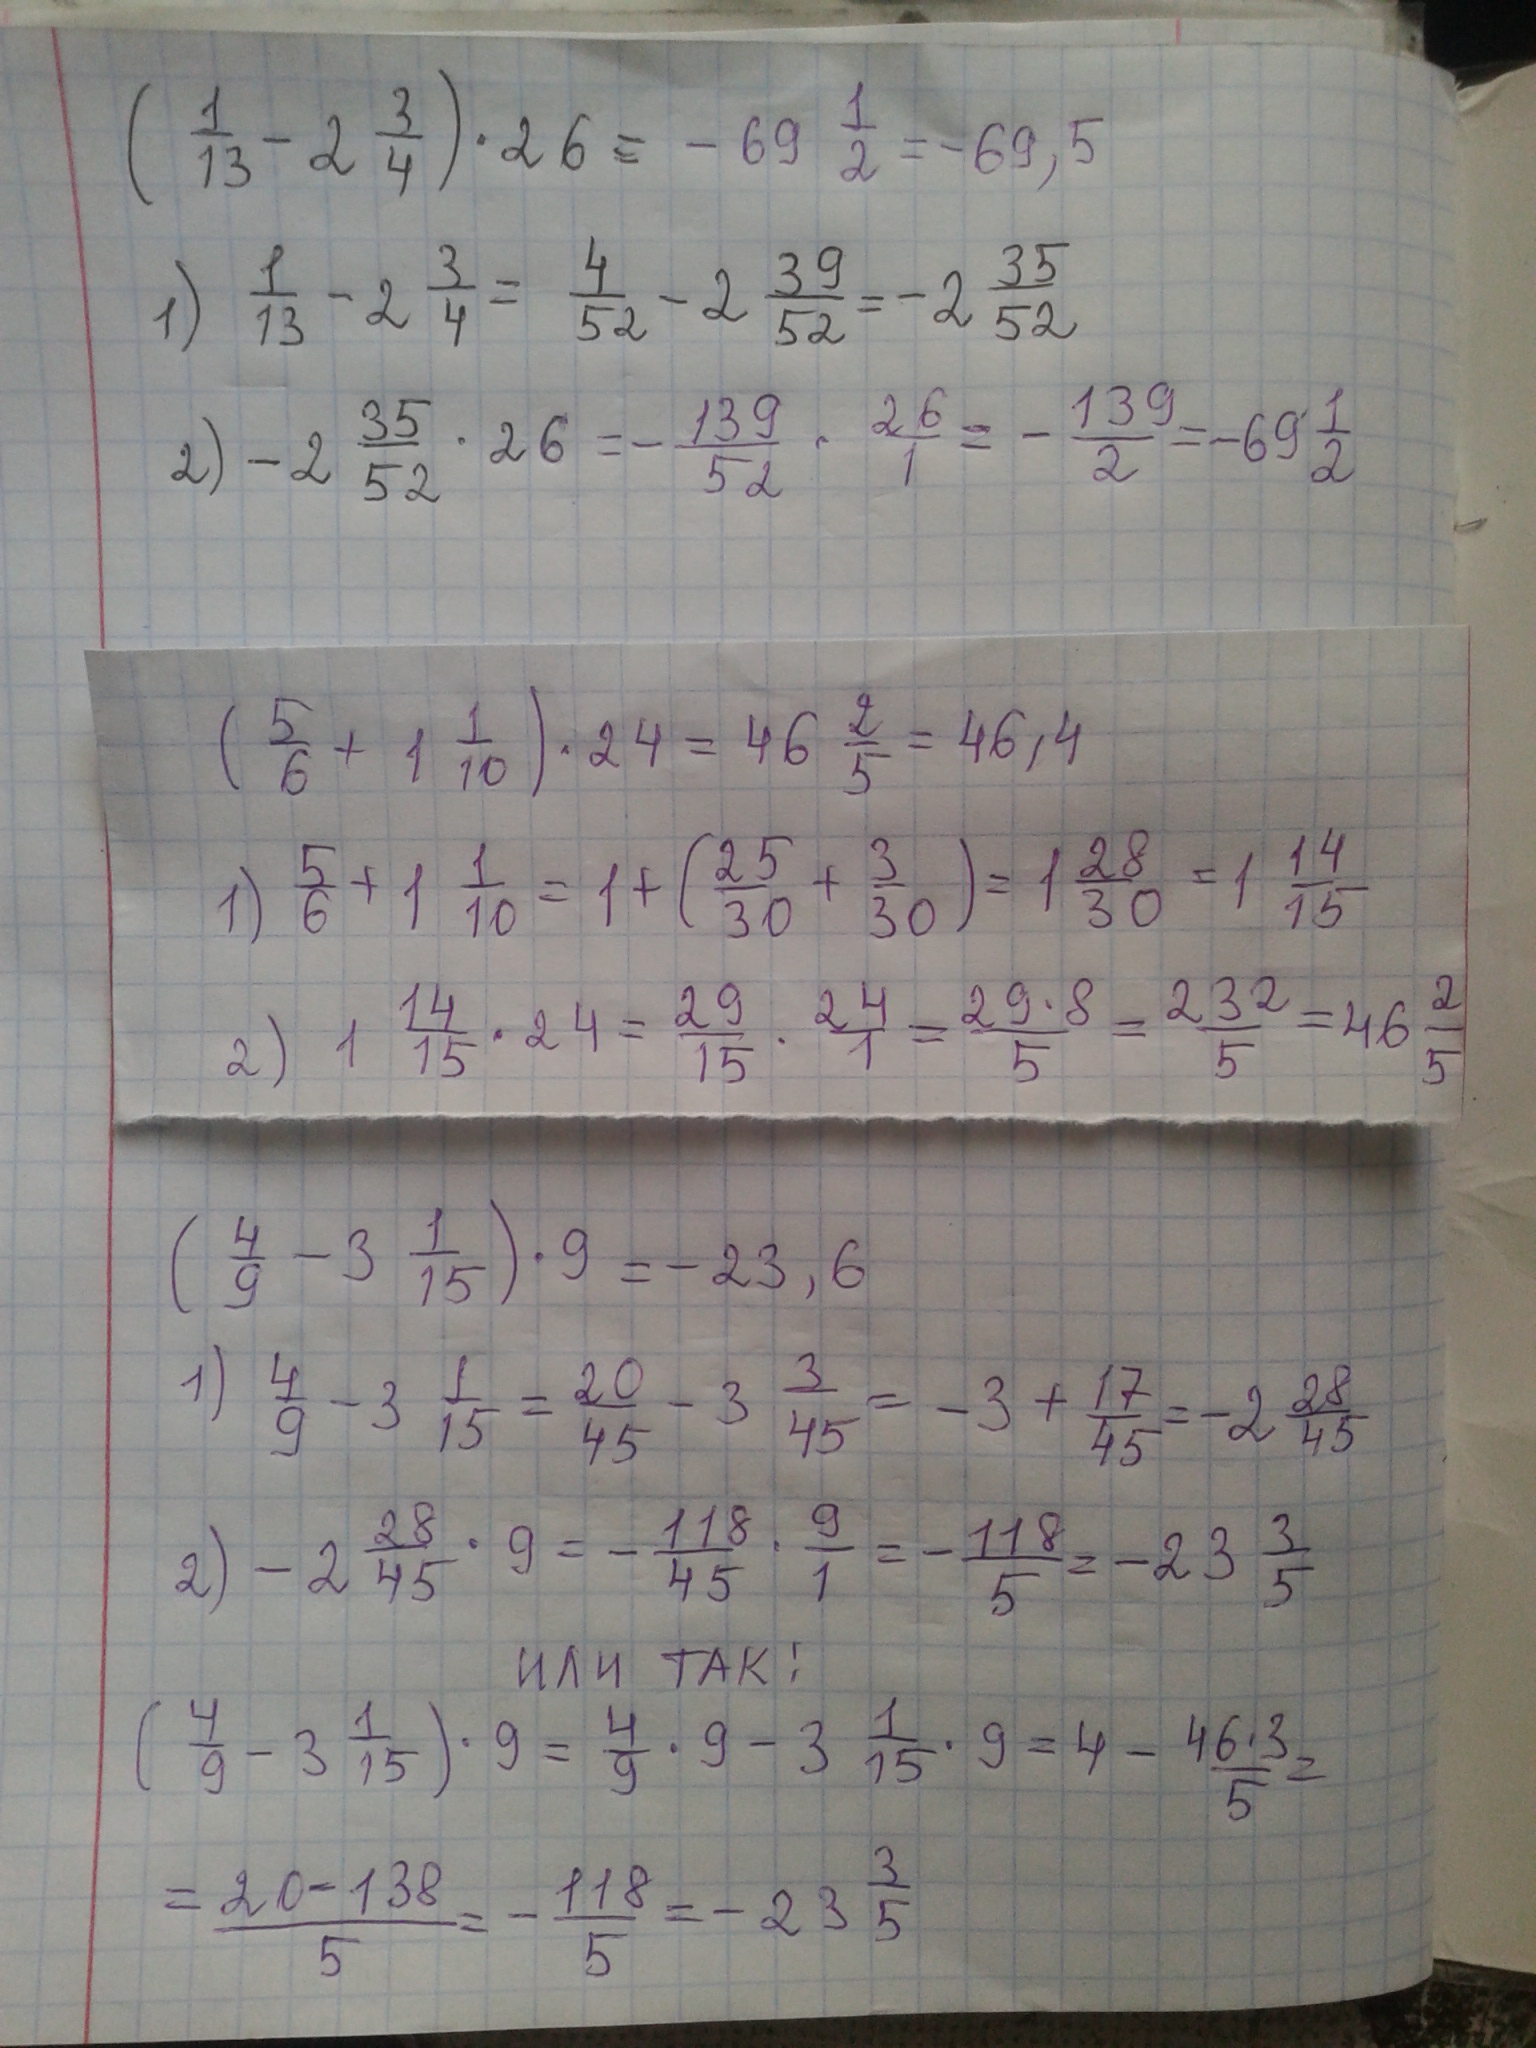 (1/13 - 2 3/4) · 26 = - 69 1/2 = -69,5
1) 1/13 - 2 3/4 = 4/52 - 2 39/52 = -2 35/52
2) -2 35/52 · 26 = - 139/52 · 26/1 = - 139/2 = -69 1/2
(5/6 + 1 1/10) · 24 = 46 2/5 = 46,4
1) 5/6 + 1 1/10 = 1 + (25/30 + 3/30) = 1 28/30 = 1 14/15
2) 1 14/15 · 24 = 29/15 · 24/1 = 29·8/5 = 232/5 = 46 2/5
(4/9 - 3 1/15) · 9 = -23,6
1) 4/9 - 3 1/15 = 20/45 - 3 3/45 = -3 + 17/45 = -2 28/45
2) -2 28/45 · 9 = - 118/45 · 9/1 = - 118/5 = -23 3/5
ИЛИ ТАК:
(4/9 - 3 1/15) · 9 = 4/9 · 9 - 3 1/15 · 9 = 4 - 46·3/5 =
= 20-138/5 = - 118/5 = -23 3/5